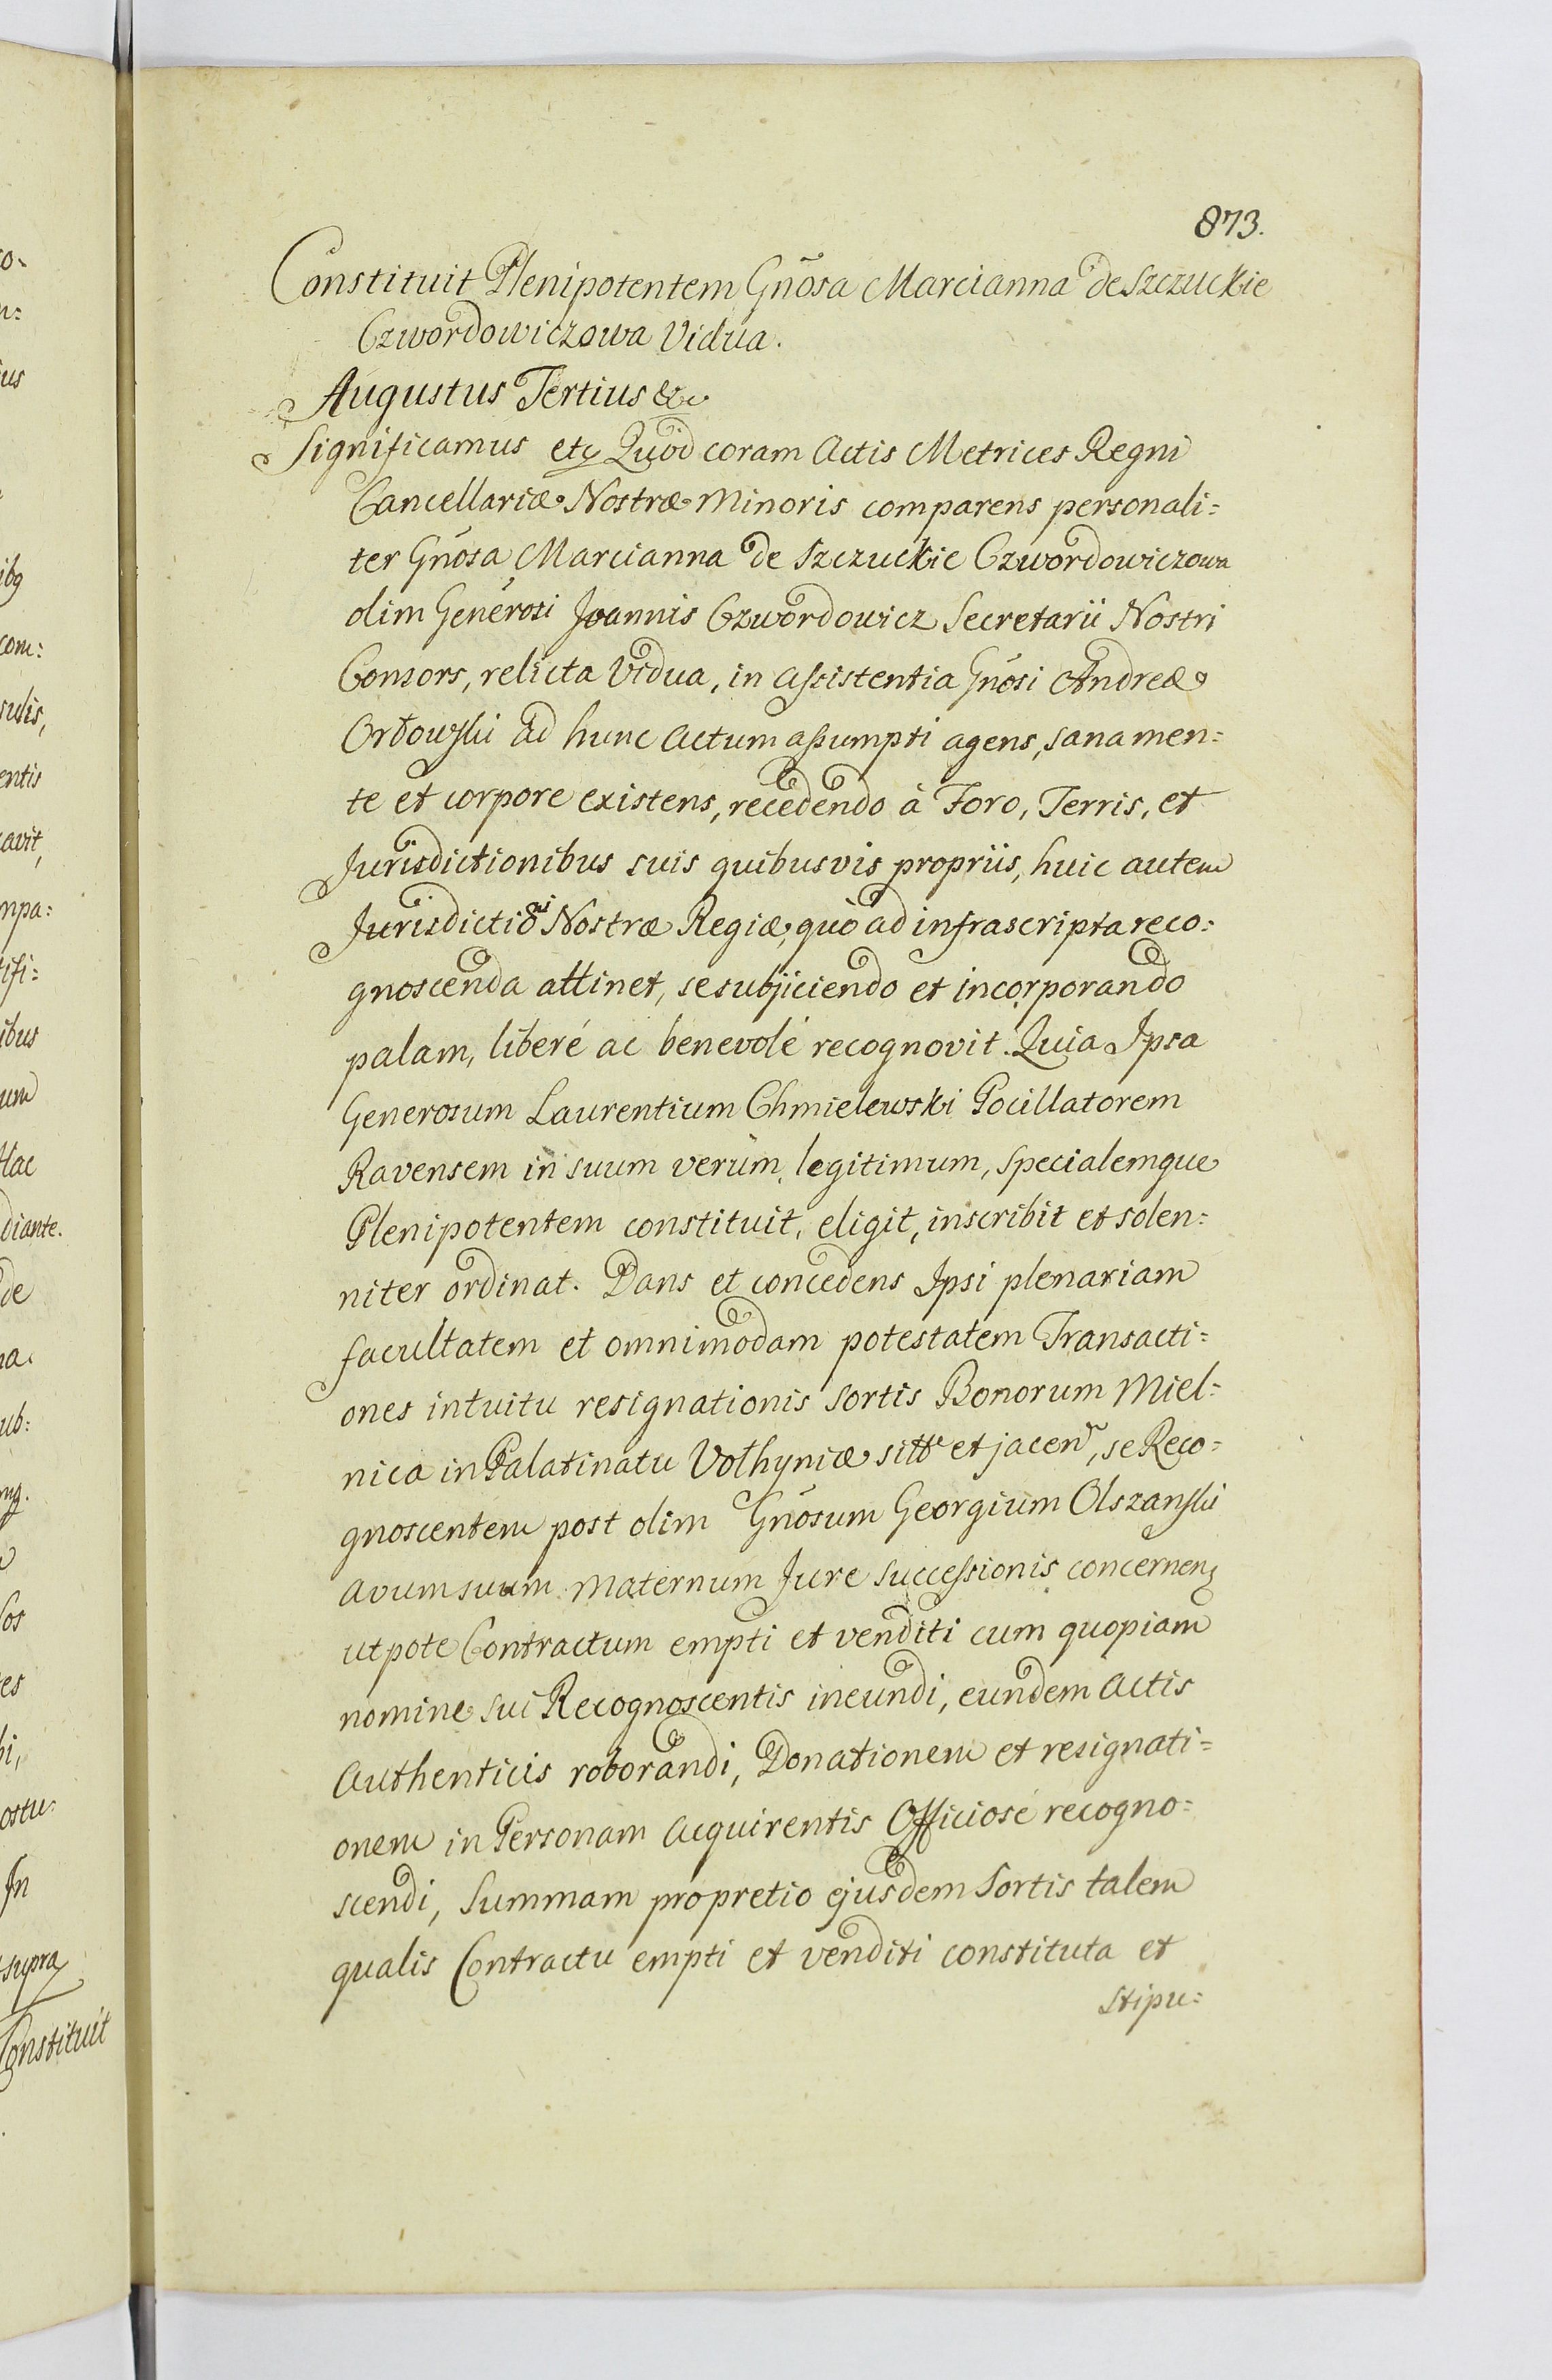 873.
Constituit Plenipotentem Gnõsa Marcianna de Szczuckie
Czwordowiczowa Vidua.
Augustus Tertius &c.
Significamus etc Quòd coram Actis Metrices Regni
Cancellariæ Nostræ Minoris comparens personali=
ter Gnõsa Marcianna de Szczuckie Czwordowiczowa
olim Generosi Joannis Czwordowicz Secretarii Nostri
Consors, relicta Vidua, in assistentia Gnõsi Andreæ
Orłowski ad hunc Actum assumpti agens, sana men=
te et corpore existens, recedendo à Foro, Terris, et
Jurisdictionibus suis quibusvis propriis, huic autem
Jurisdictioni Nostræ Regiæ, quò ad infrascripta reco=
gnoscenda attinet, se subjiciendo et incorporando
palam, liberé ac benevolé recognovit. Quia Ipsa
Generosum Laurentium Chmielewski Pocillatorem
Ravensem in suum verum, legitimum, specialemque
Plenipotentem constituit, eligit, inscribit et solen=
niter ordinat. Dans et concedens Ipsi plenariam
facultatem et omnimodam potestatem Transacti=
ones intuitu resignationis Sortis Bonorum Miel=
nica in Palatinatu Volhyniæ sitt et jacen, se Reco=
gnoscentem post olim Gnõsum Georgium Olszanski
avum suum Maternum Jure Successionis concernen
utpote Contractum empti et venditi cum quopiam
nomine sui Recognoscentis ineundi, eundem Actis
Authenticis roborandi, Donationem et resignati=
onem in Personam Acquirentis Officiosé recogno=
scendi, Summam pro pretio ejusdem Sortis talem
qualis Contractu empti et venditi constituta et
Stipu=
Constituit